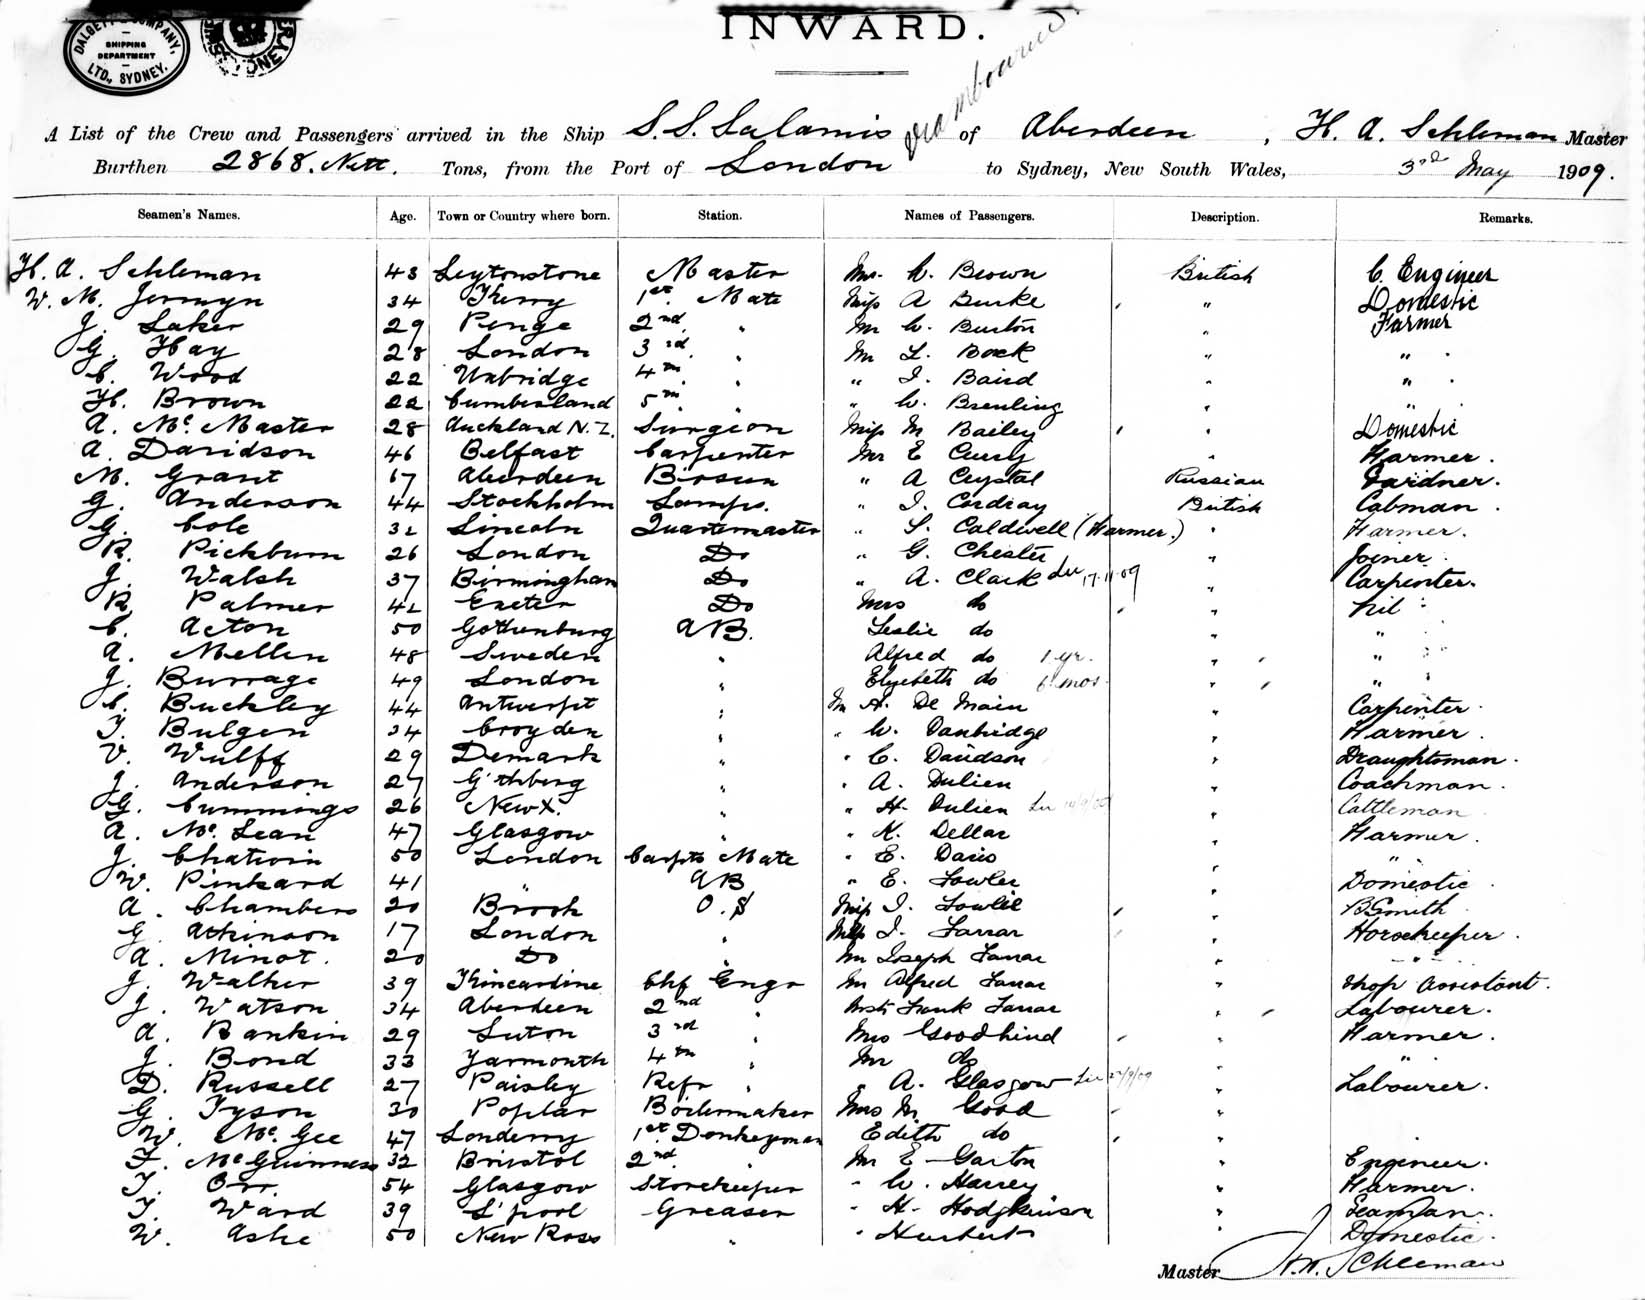 DALGETY & COMPANY, LTD., SYDNEY.
SHIPPING DEPARTMENT
SYDNEY
INWARD.
A List of the Crew and Passengers arrived in the Ship S.S. Salamis of Aberdeen, H. A. Schleman Master
Burthen 2868. Nett. Tons, from the Port of London to Sydney, New South Wales, 3rd May 1909.
Seamen's Names. Age. Town or Country where born. Station. Names of Passengers. Description. Remarks.
H. A. Schleman 43 Leytonstone Master Mr. C. Brown British C. Engineer
W. M. Jermyn 34 Kerry 1st. Mate Miss A Burke " Domestic
J. Laker 29 Penge 2nd " Mr W. Burton " Farmer
G. Hay 28 London 3rd " Mr L. Bock " "
C. Wood 22 Uxbridge 4th " " I. Baird " "
H. Brown 22 Cumberland 5th " " W. " "
A. Mc. Master 28 Auckland N.Z. Surgeon Miss M Bailey " Domestic
A. Davidson 46 Belfast Carpenter Mr E " Farmer.
M. Grant 67 Aberdeen Bosun " A Crystal Russian Gardner.
G. Anderson 44 Stockholm Lamps. " J. Cordray British Cabman
G. Cole 32 Lincoln Quartermaster " S. Caldwell (Farmer.) " Farmer.
R. Pickburn 26 London Do " G. Chester " Joiner
J. Walsh 37 Birmingham Do " A. Clark 17.11.09 " Carpenter.
R. Palmer 42 Exeter Do Mrs do " Nil
C. Acton 50 Gothenburg AB. Leslie do " "
A. Mellin 48 Sweden " Alfred do 1 yr. " "
J. Burrage 49 London " Elizebeth do 6 mos. " "
C. Buckley 44 Antwerpt " Mr H. De Main " Carpenter
T. Bulgen 34 Croyden " " W. Danbridge " Farmer.
V. Wulff 29 Demark " " C. Davidson " Draughtsman.
J. Anderson 27 G'thberg " " A. Dulien " Coachman.
G. Cummings 26 New X. " " H. Dulien " Cattleman
A. Mc. Lean 47 Glasgow " " K. Dellar " Farmer.
J. Chatwin 50 London Carpts Mate " E. Davis " "
W. Pinkard 41 " AB " E. Fowler " Domestic
A. Chambers 20 Brook O.S Miss I. " B Smith
G. Atkinson 17 London " Miss I. Farrar " Horsekeeper.
A. Minot. 20 Do " Mr Joseph Farrar " "
J. Walker 39 Kincardine Chf Engr Mr Alfred Farrar " Shop Assistant.
J. Watson 34 Aberdeen 2nd " Mstr Frank Farrar " Labourer.
A. Rankin 29 Luton 3rd " Mrs Goodhind " Farmer.
J. Bond 33 Yarmouth 4th " Mr do " "
D. Russell 27 Paisley Refr " " A. Glasgow " Labourer.
G. Tyson 30 Poplar Boilermaker Mrs M. Good "
W. Mc. Gee 47 Londerry 1st. Donkeyman Edith do "
F. McGuinness 32 Bristol 2nd. " Mr E Garton " Engineer.
T. Orr. 54 Glasgow Storekeeper " W. Harvey " Farmer.
T. Ward 39 L'pool Greaser " H. Hodgkinson " Seaman.
W. Ashe 50 New Ross " " Herbert " Domestic.
Master H. A. Schleman